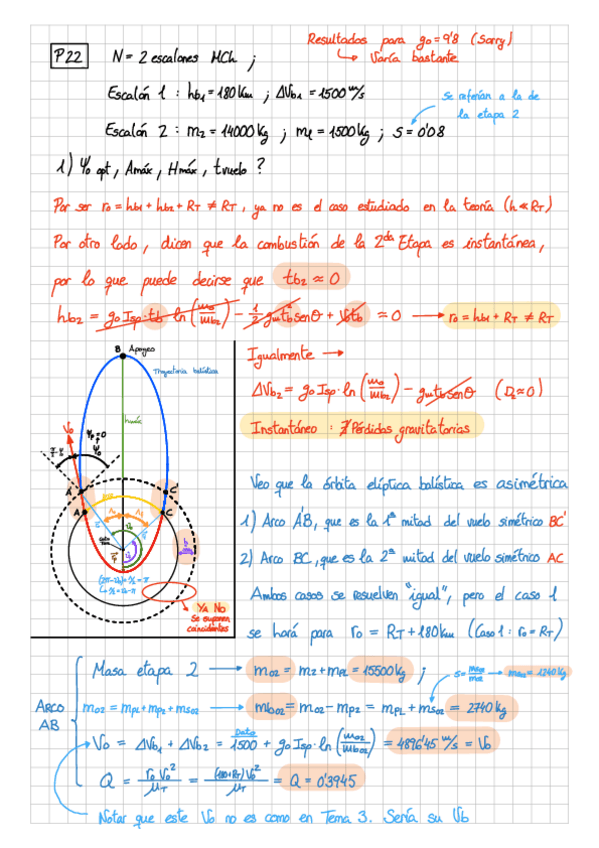 Resultados para g₀ = 9'8 (Sorry)
↳ Varía bastante
P22 N = 2 escalones MCh ;
Escalón 1 : hb1 = 180 Km ; ΔVb1 = 1500 m/s
Se referían a la de
la etapa 2
Escalón 2 : m2 = 14000 kg ; mL = 1500 kg ; S = 0'08
1) Ψ₀ opt, Amáx, Hmáx, tvuelo ?
Por ser r₀ = hb1 + hb2 + RT ≠ RT , ya no es el caso estudiado en la teoría (h ≪ RT)
Por otro lado, dicen que la combustión de la 2da Etapa es instantánea,
por lo que puede decirse que tb2 ≈ 0
hb2 = g₀ Isp·tb ln(m₀/mb2) - 1/2 g tb² senθ + V₀tb ≈ 0 → r₀ = hb1 + RT ≠ RT
B Apogeo
Trayectoria balística
hmáx
V₀
A' C'
A C
Ya No
Se suponen
coincidentes
Igualmente →
ΔVb2 = g₀ Isp·ln(m₀/mb2) - g tb senθ (D₂≈0)
Instantáneo : ∄ Pérdidas gravitatorias
Veo que la órbita elíptica balística es asimétrica
1) Arco A'B, que es la 1ª mitad del vuelo simétrico BC'
2) Arco BC, que es la 2ª mitad del vuelo simétrico AC
Ambos casos se resuelven "igual", pero el caso 1
se hará para r₀ = RT + 180 Km (Caso 1 : r₀ = RT)
ARCO
AB
Masa etapa 2 → m02 = m2 + mPL = 15500 kg ;
m02 = mPL + mP2 + mS02 → mb02 = m02 - mP2 = mPL + mS02 = 2740 kg
V₀ = ΔVb1 + ΔVb2 = 1500 + g₀ Isp·ln(m02/mb02) = 4896'45 m/s = V₀
Dato
Q = r₀ V₀²/μT = (180+RT) V₀²/μT = Q = 0'3945
Notar que este V₀ no es como en Tema 3. Sería su Vb